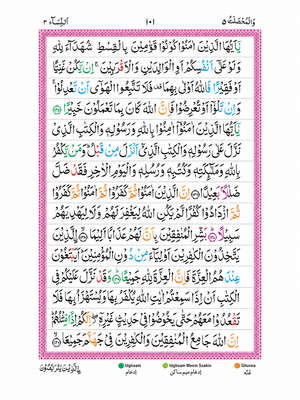 وَالْمُحْصَنٰتُ ٥ ١٠١ اَلنِّسَآء ٤
يٰۤاَيُّهَا الَّذِيْنَ اٰمَنُوْا كُوْنُوْا قَوّٰمِيْنَ بِالْقِسْطِ شُهَدَآءَ لِلّٰهِ
وَلَوْ عَلٰۤى اَنْفُسِكُمْ اَوِ الْوَالِدَيْنِ وَالْاَقْرَبِيْنَ ۚ اِنْ يَّكُنْ غَنِيًّا
اَوْ فَقِيْرًا فَاللّٰهُ اَوْلٰى بِهِمَا فَلَا تَتَّبِعُوا الْهَوٰۤى اَنْ تَعْدِلُوْا ۚ
وَاِنْ تَلْوٗۤا اَوْ تُعْرِضُوْا فَاِنَّ اللّٰهَ كَانَ بِمَا تَعْمَلُوْنَ خَبِيْرًا ﴿١٣٥﴾
يٰۤاَيُّهَا الَّذِيْنَ اٰمَنُوْۤا اٰمِنُوْا بِاللّٰهِ وَرَسُوْلِهٖ وَالْكِتٰبِ الَّذِىْ
نَزَّلَ عَلٰى رَسُوْلِهٖ وَالْكِتٰبِ الَّذِىْۤ اَنْزَلَ مِنْ قَبْلُ ؕ وَمَنْ يَّكْفُرْ
بِاللّٰهِ وَمَلٰٓئِكَتِهٖ وَكُتُبِهٖ وَرُسُلِهٖ وَالْيَوْمِ الْاٰخِرِ فَقَدْ ضَلَّ
ضَلٰلًاۢ بَعِيْدًا ﴿١٣٦﴾ اِنَّ الَّذِيْنَ اٰمَنُوْا ثُمَّ كَفَرُوْا ثُمَّ اٰمَنُوْا ثُمَّ كَفَرُوْا
ثُمَّ ازْدَادُوْا كُفْرًا لَّمْ يَكُنِ اللّٰهُ لِيَغْفِرَ لَهُمْ وَلَا لِيَهْدِيَهُمْ
سَبِيْلًا ﴿١٣٧﴾ بَشِّرِ الْمُنٰفِقِيْنَ بِاَنَّ لَهُمْ عَذَابًا اَلِيْمًا ﴿١٣٨﴾ اۨلَّذِيْنَ
يَتَّخِذُوْنَ الْكٰفِرِيْنَ اَوْلِيَآءَ مِنْ دُوْنِ الْمُؤْمِنِيْنَ ؕ اَيَبْتَغُوْنَ
عِنْدَهُمُ الْعِزَّةَ فَاِنَّ الْعِزَّةَ لِلّٰهِ جَمِيْعًا ﴿١٣٩﴾ وَقَدْ نَزَّلَ عَلَيْكُمْ فِى
الْكِتٰبِ اَنْ اِذَا سَمِعْتُمْ اٰيٰتِ اللّٰهِ يُكْفَرُ بِهَا وَيُسْتَهْزَاُ بِهَا فَلَا
تَقْعُدُوْا مَعَهُمْ حَتّٰى يَخُوْضُوْا فِىْ حَدِيْثٍ غَيْرِهٖۤ ۖ اِنَّكُمْ اِذًا مِّثْلُهُمْ ؕ
اِنَّ اللّٰهَ جَامِعُ الْمُنٰفِقِيْنَ وَالْكٰفِرِيْنَ فِىْ جَهَنَّمَ جَمِيْعًا ﴿١٤٠﴾
اۨلَّذِيْنَ يَتَرَبَّصُوْنَ
Idghaam Idghaam Meem Saakin Ghunna
ادغام ادغام میم ساکن غنّه